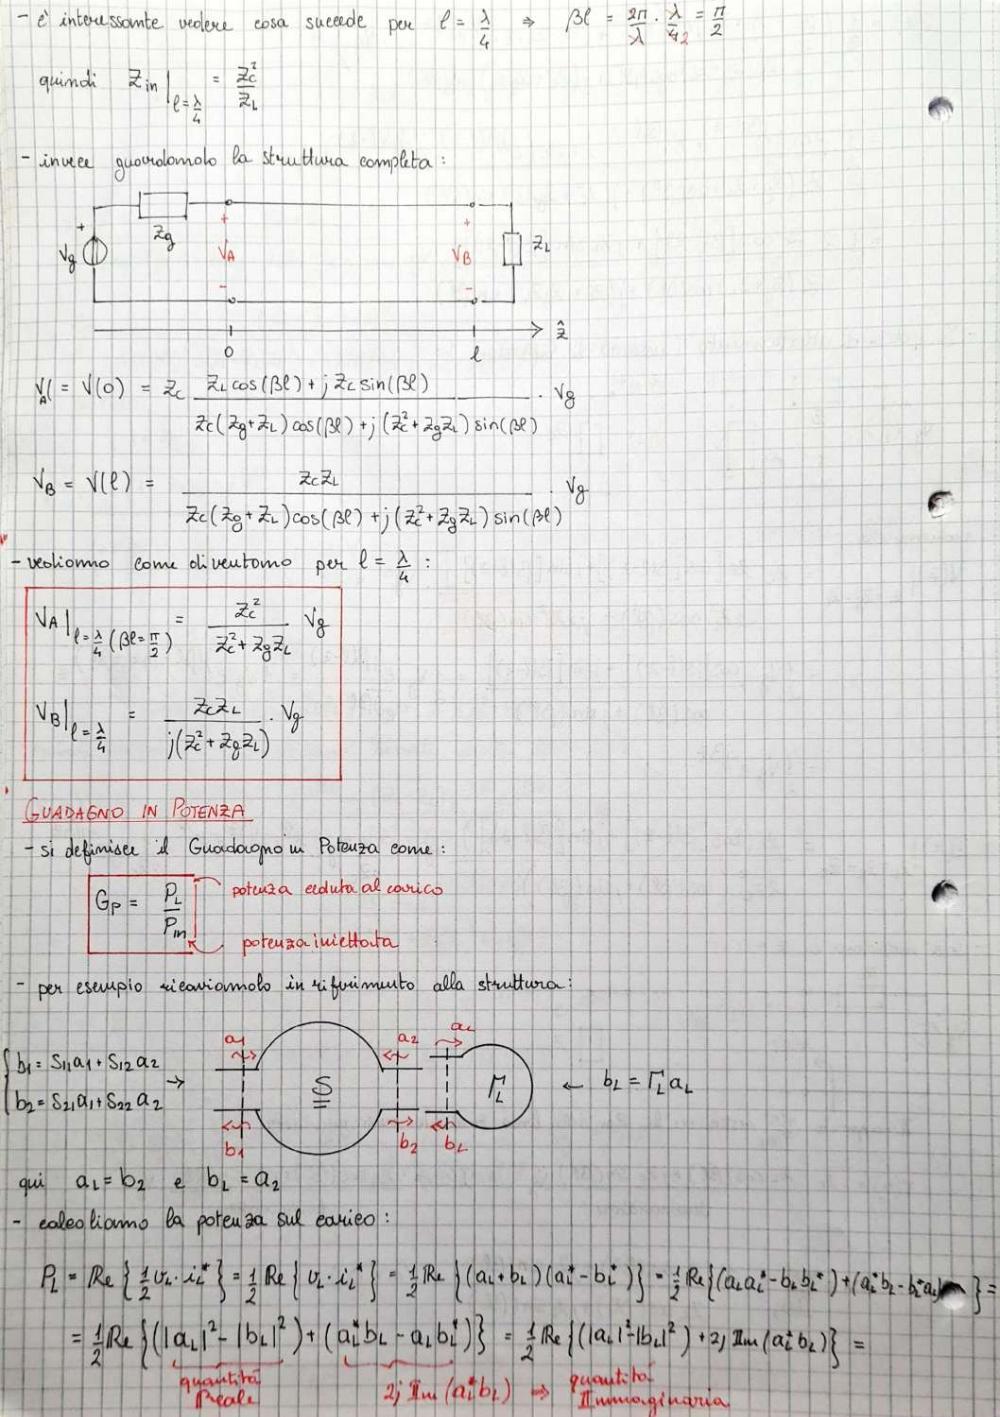 - è interessante vedere cosa succede per l = λ/4 ⇒ βl = 2π/λ · λ/4 2 = π/2
quindi Zin|l=λ/4 = Zc²/ZL
- invece guardiamolo la struttura completa:
+ Zg + + ZL
Vg VA VB
- -
0 l ẑ
VA = V(0) = Zc (ZL cos(βl) + j Zc sin(βl)) / (Zc(Zg+ZL) cos(βl) + j(Zc²+ZgZL) sin(βl)) · Vg
VB = V(l) = ZcZL / (Zc(Zg+ZL) cos(βl) + j(Zc²+ZgZL) sin(βl)) · Vg
- vediamo come diventano per l = λ/4 :
VA|l=λ/4 (βl=π/2) = Zc² / (Zc² + ZgZL) Vg
VB|l=λ/4 = ZcZL / (j(Zc² + ZgZL)) · Vg
GUADAGNO IN POTENZA
- si definisce il Guadagno in Potenza come:
GP = PL/Pin
potenza ceduta al carico
potenza iniettata
- per esempio ricaviamolo in riferimento alla struttura:
a1 a2 aL
b1 = S11a1 + S12a2
b2 = S21a1 + S22a2 → S ΓL ← bL = ΓL aL
b1 b2 bL
qui aL = b2 e bL = a2
- calcoliamo la potenza sul carico:
PL = Re{½ vL·iL*} = ½ Re{vL·iL*} = ½ Re{(aL+bL)(aL*-bL*)} = ½ Re{(aLaL*-bLbL*)+(aL*bL-bL*aL)} =
= ½ Re{(|aL|²-|bL|²)+(aL*bL-aLbL*)} = ½ Re{(|aL|²-|bL|²)+2j Im(aL*bL)} =
quantità Reale 2j Im(aL*bL) → quantità Immaginaria